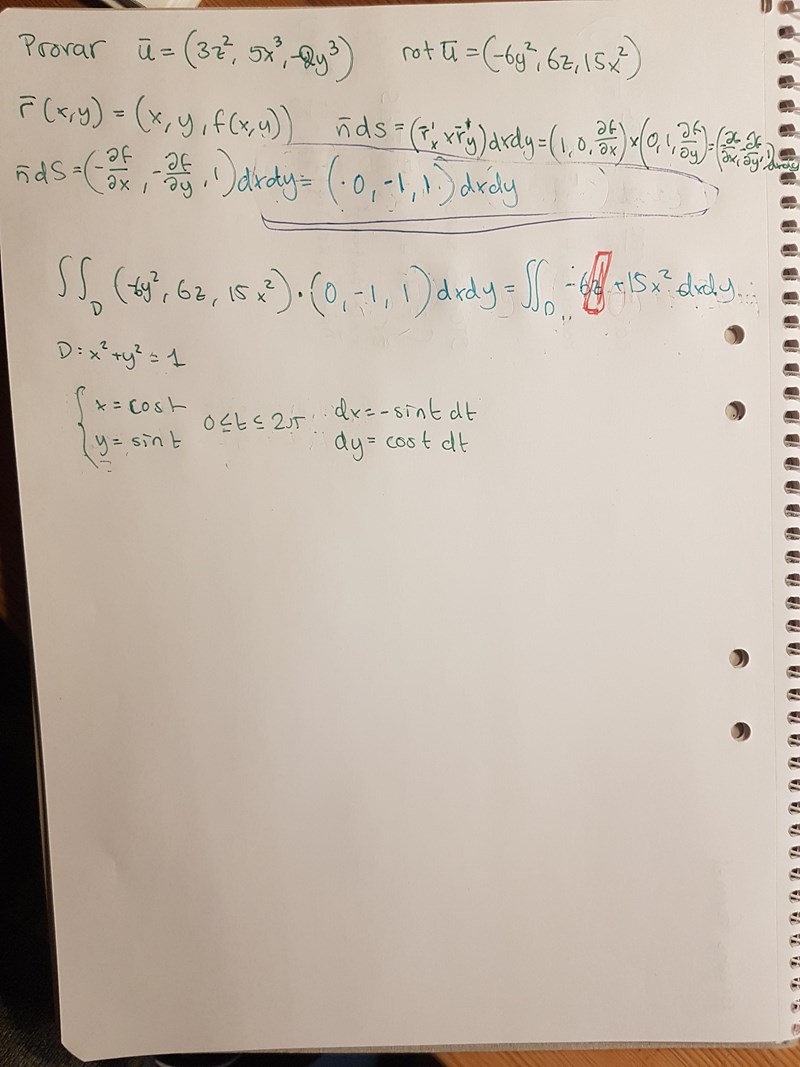 Provar ū = (3z², 5x³, -2y³) rot ū = (-6y², 6z, 15x²)
r̄(x,y) = (x, y, f(x,y)) n̄dS = (r̄'ₓ × r̄'ᵧ)dxdy = (1, 0, ∂f/∂x) × (0, 1, ∂f/∂y) = (-∂f/∂x, -∂f/∂y, 1)dxdy
n̄dS = (-∂f/∂x, -∂f/∂y, 1)dxdy = (0, -1, 1)dxdy
∬_D (-6y², 6z, 15x²)·(0, -1, 1)dxdy = ∬_D -6z + 15x² dxdy...
D: x² + y² = 1
x = cost 0 ≤ t ≤ 2π dx = -sint dt
y = sint dy = cost dt